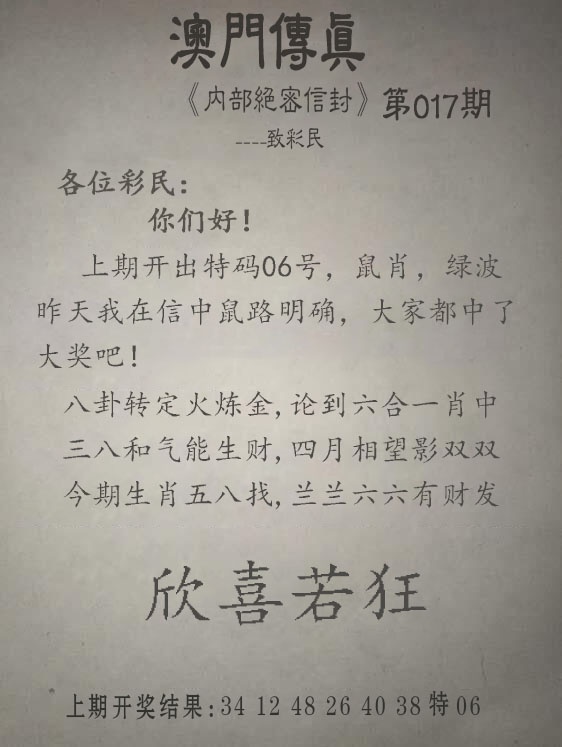 澳門傳眞
《内部絕密信封》第017期
----致彩民
各位彩民：
你们好！
上期开出特码06号，鼠肖，绿波
昨天我在信中鼠路明确，大家都中了
大奖吧！
八卦转定火炼金,论到六合一肖中
三八和气能生财,四月相望影双双
今期生肖五八找,兰兰六六有财发
欣喜若狂
上期开奖结果:34 12 48 26 40 38 特 06